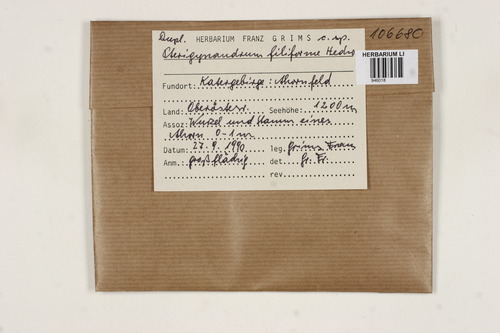 Dupl. HERBARIUM FRANZ GRIMS c. sp.
106680
Pterigynandrum filiforme Hedw.
HERBARIUM LI
Fundort: Katergebirge: Ahornfeld
Land: Oberösterr. Seehöhe: 1200 m
Assoz: Wurzel und Stamm eines
Ahorn 0-1 m
Datum: 27.9.1990 leg. Grims Franz
Anm. großflächig det. Gr. Fr.
rev.